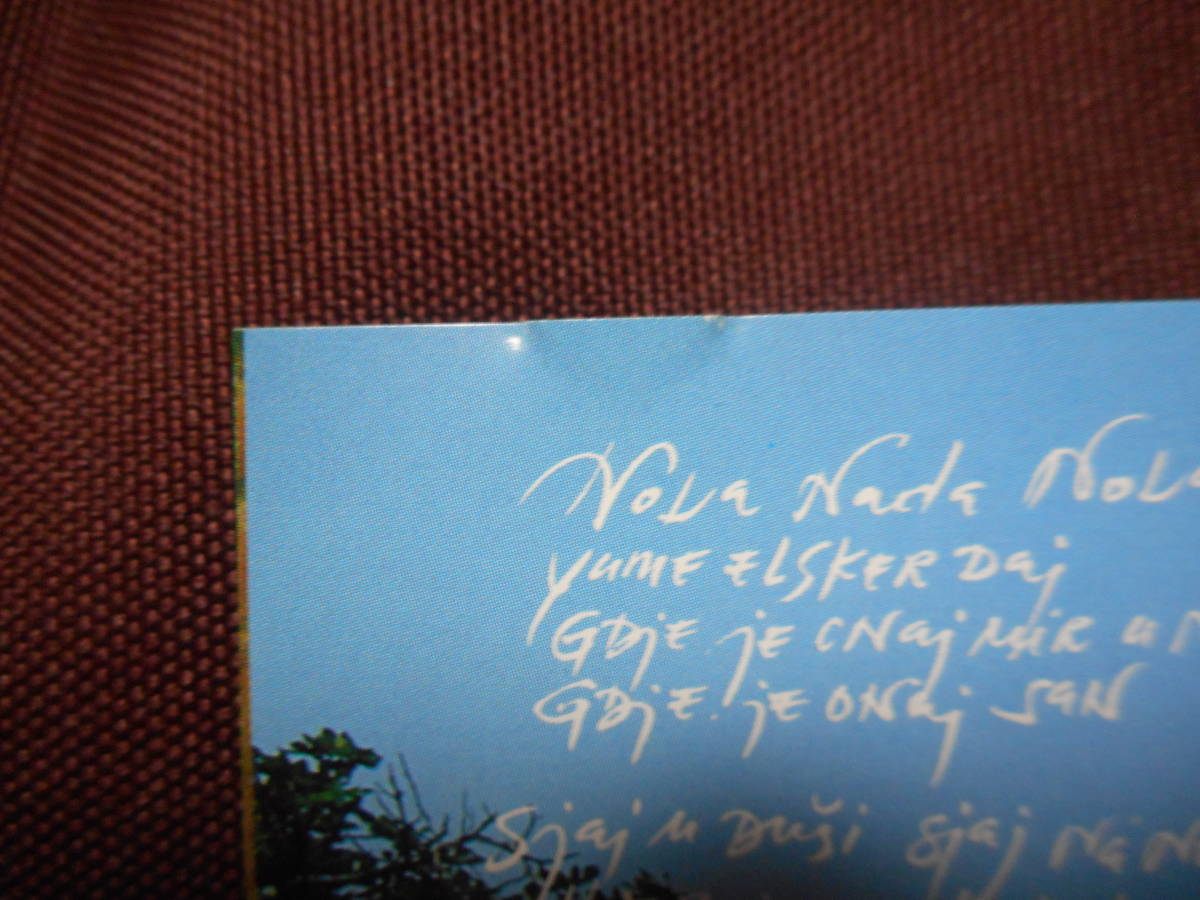 Nola Nada Nola
YUME ELSKER Daj
GDjE jE ONaj MIR u
GDjE jE ONaj SaN
Sjaj u Duši Sjaj Na